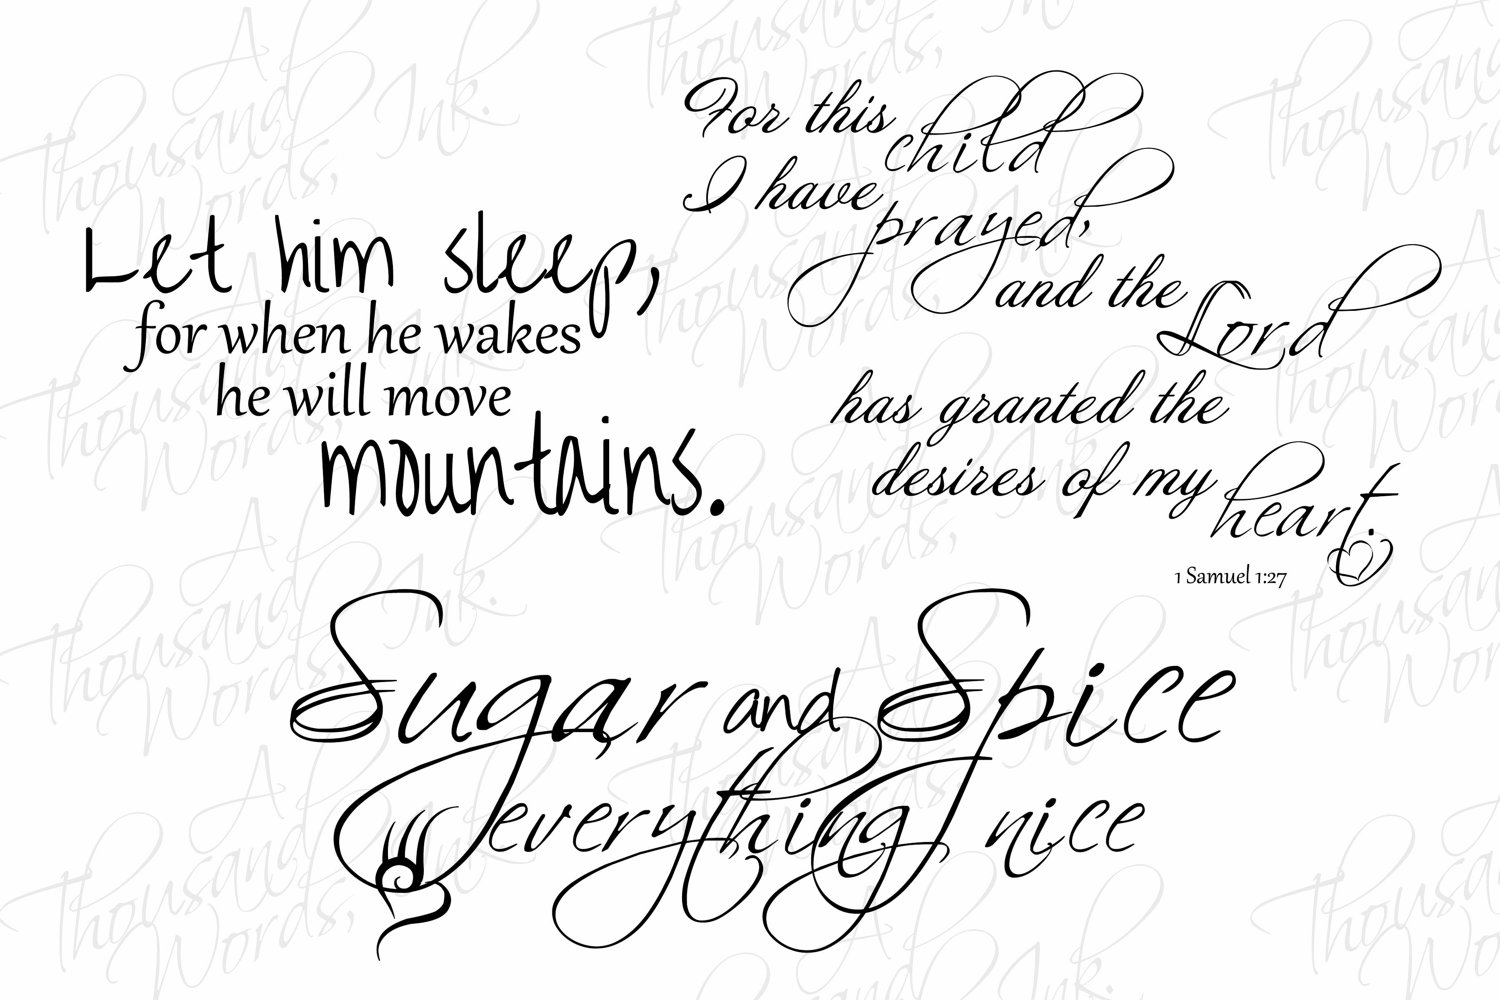 Let him sleep,
for when he wakes
he will move
mountains.
For this
child
I have
prayed,
and the
Lord
has granted the
desires of my
heart.
1 Samuel 1:27
Sugar and Spice
everything nice
A
Thousand
Words, Ink.